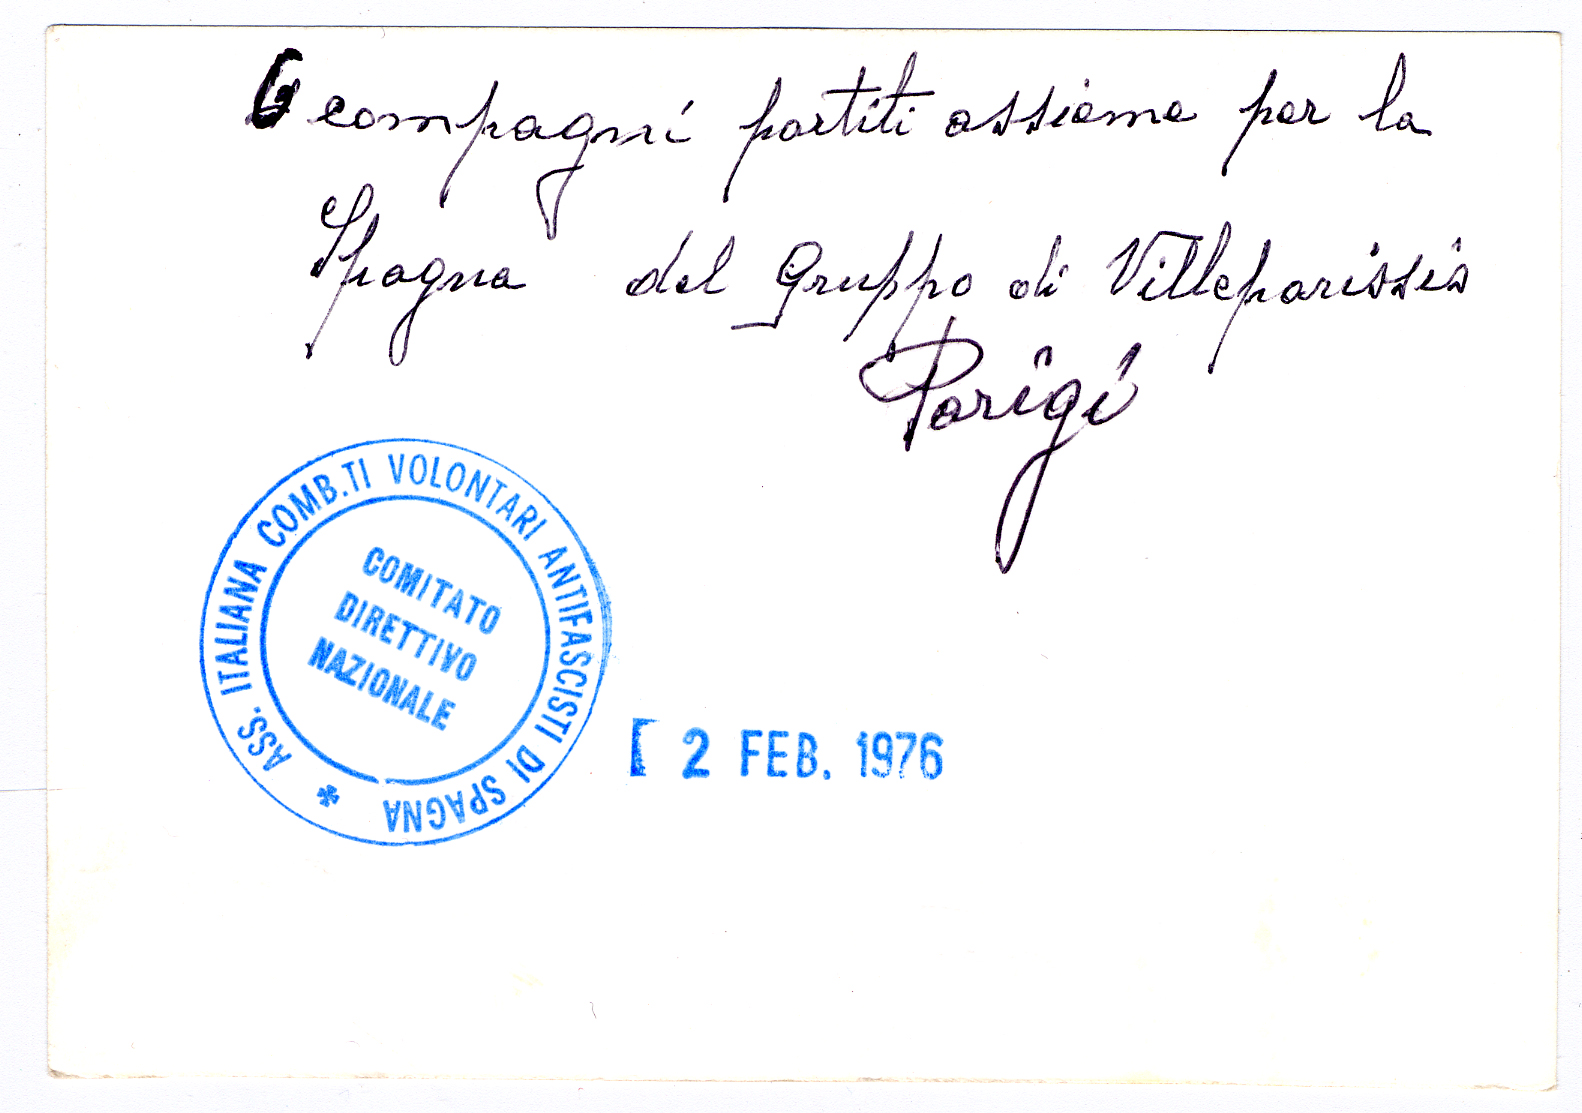 6 compagni partiti assieme per la
Spagna del Gruppo di Villeparissis
Parigi
ASS. ITALIANA COMB.TI VOLONTARI ANTIFASCISTI DI SPAGNA
COMITATO
DIRETTIVO
NAZIONALE
[ 2 FEB. 1976